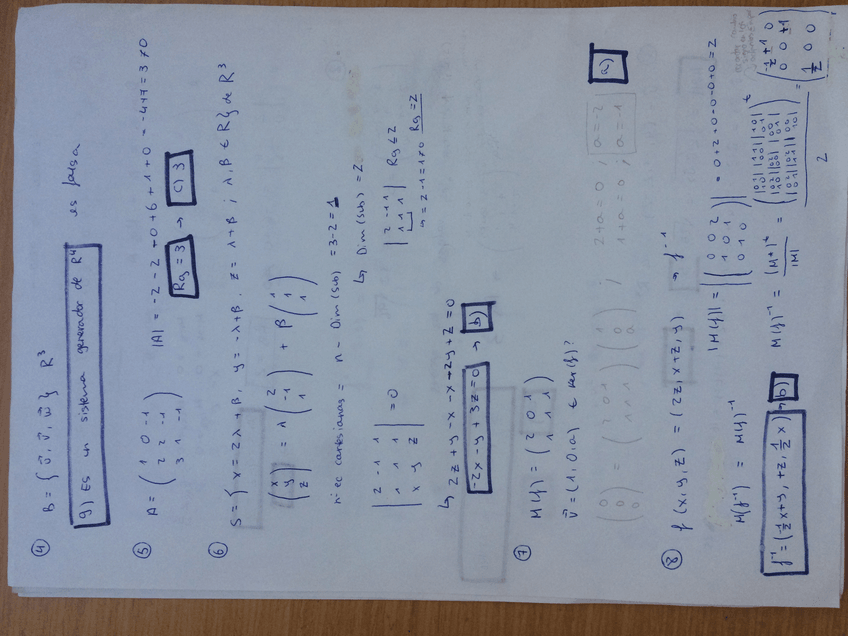 ④ B = { ū, v̄, w̄ } R³
g) Es un sistema generador de R⁴ es falsa
⑤ A = ( 1 0 -1 / 2 2 -1 / 3 1 -1 ) |A| = -2 -2 +0 +6 +1 +0 = -4+7 = 3 ≠ 0
Rg = 3 → c) 3
⑥ S = { x = 2λ+β, y = -λ+β, z = λ+β ; λ, β ∈ R } de R³
( x / y / z ) = λ ( 2 / -1 / 1 ) + β ( 1 / 1 / 1 )
nº ec cartesianas = n - Dim (sub) = 3-2 = 1
↳ Dim (sub) = 2
| 2 -1 1 / 1 1 1 / x y z | = 0
| 2 -1 1 / 1 1 1 | Rg ≤ 2
Rg = 2
↳ 2z + y - x - x - 2y + z = 0
-2x - y + 3z = 0 → b)
⑦ M(f) = ( 2 0 1 / 1 1 1 )
v̄ = (1, 0, a) ∈ Ker(f)?
( 0 / 0 ) = ( 2 0 1 / 1 1 1 ) ( 1 / 0 / a ) ; 2+a = 0 ; a = -2
1+a = 0 ; a = -1
a)
⑧ f (x, y, z) = (2z, x+z, y) → f⁻¹
|M(f)| = | ( 0 0 2 / 1 0 1 / 0 1 0 ) | = 0+2+0-0-0+0 = 2
M(f⁻¹) = M(f)⁻¹
M(f)⁻¹ = (M*)ᵗ / |M| =
2
= ( -1/2 +1 0 / 0 0 +1 / 1/2 0 0 )
f⁻¹ = (-1/2 x + y, +z, 1/2 x) → b)